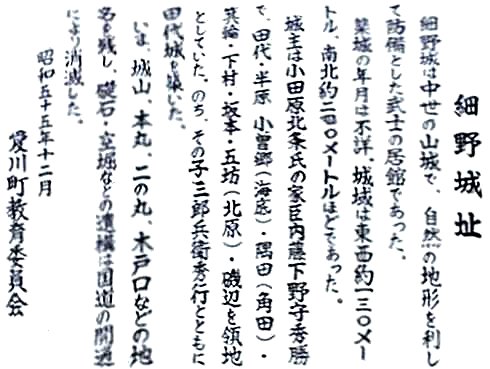 細野城址
細野城は中世の山城で、自然の地形を利し
て防備とした武士の居館であった。
築城の年月は不詳。城域は東西約一三〇メー
トル、南北約二〇〇メートルほどであった。
城主は小田原北条氏の家臣内藤下野守秀勝
で、田代・半原 小曽郷（海底）・隅田（角田）・
箕輪・下村・坂本・五坊（北原）・磯辺を領地
としていた。のち、その子三郎兵衛秀行とともに
田代城を築いた。
いま、城山、本丸、二の丸、木戸口などの地
名を残し、礎石・空堀などの遺構は国道の開通
により消滅した。
昭和五十五年十二月
愛川町教育委員会